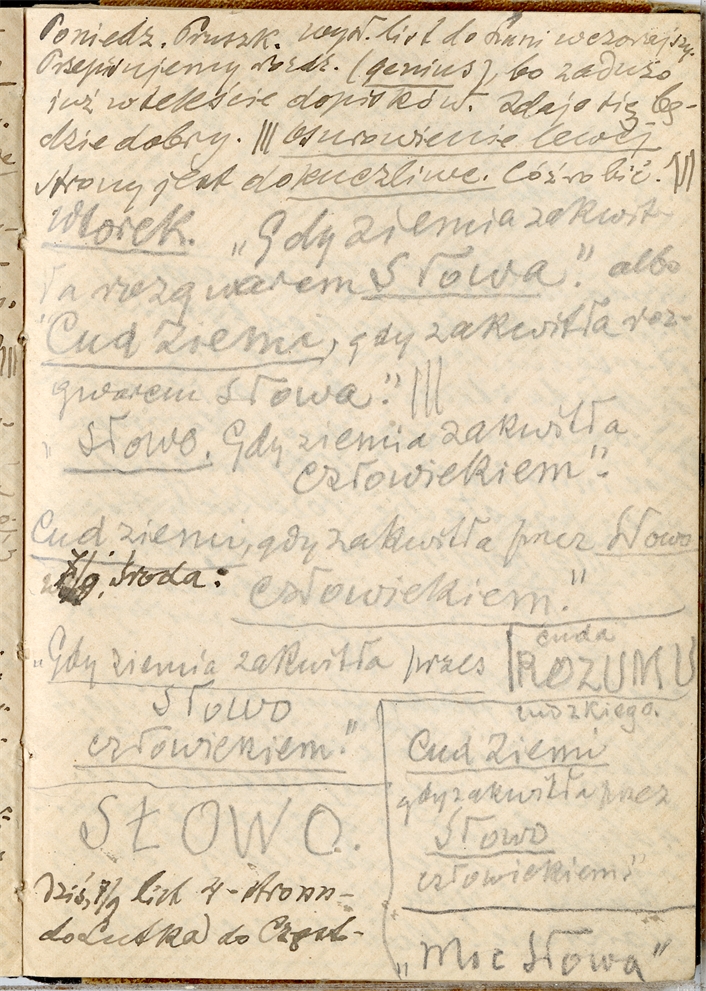 Poniedz. Pruszk. wysł. list do Luni wczorajszy.
Przepisujemy rozdz. (genius), bo za dużo
już w tekście dopisków. Zdaje się, bę-
dzie dobry. ||| osurowienie lewej
strony jest dokuczliwe. Cóż robić. |||
Wtorek. „Gdy ziemia zakwit-
ła rozgwarem Słowa." albo
Cud Ziemi, gdy zakwitła roz-
gwarem Słowa." |||
„Słowo. Gdy ziemia zakwitła
człowiekiem".
Cud ziemi, gdy zakwitła przez Słowo
człowiekiem."
7/9. Środa:
„Gdy ziemia zakwitła przez
Słowo
człowiekiem."
cuda
ROZUMU
ludzkiego.
Cud Ziemi
gdy zakwitła przez
Słowo
człowiekiem."
SŁOWO.
Dziś, 7/9 list 4-stronn-
do Lutka) do Częst-
„Moc Słowa"